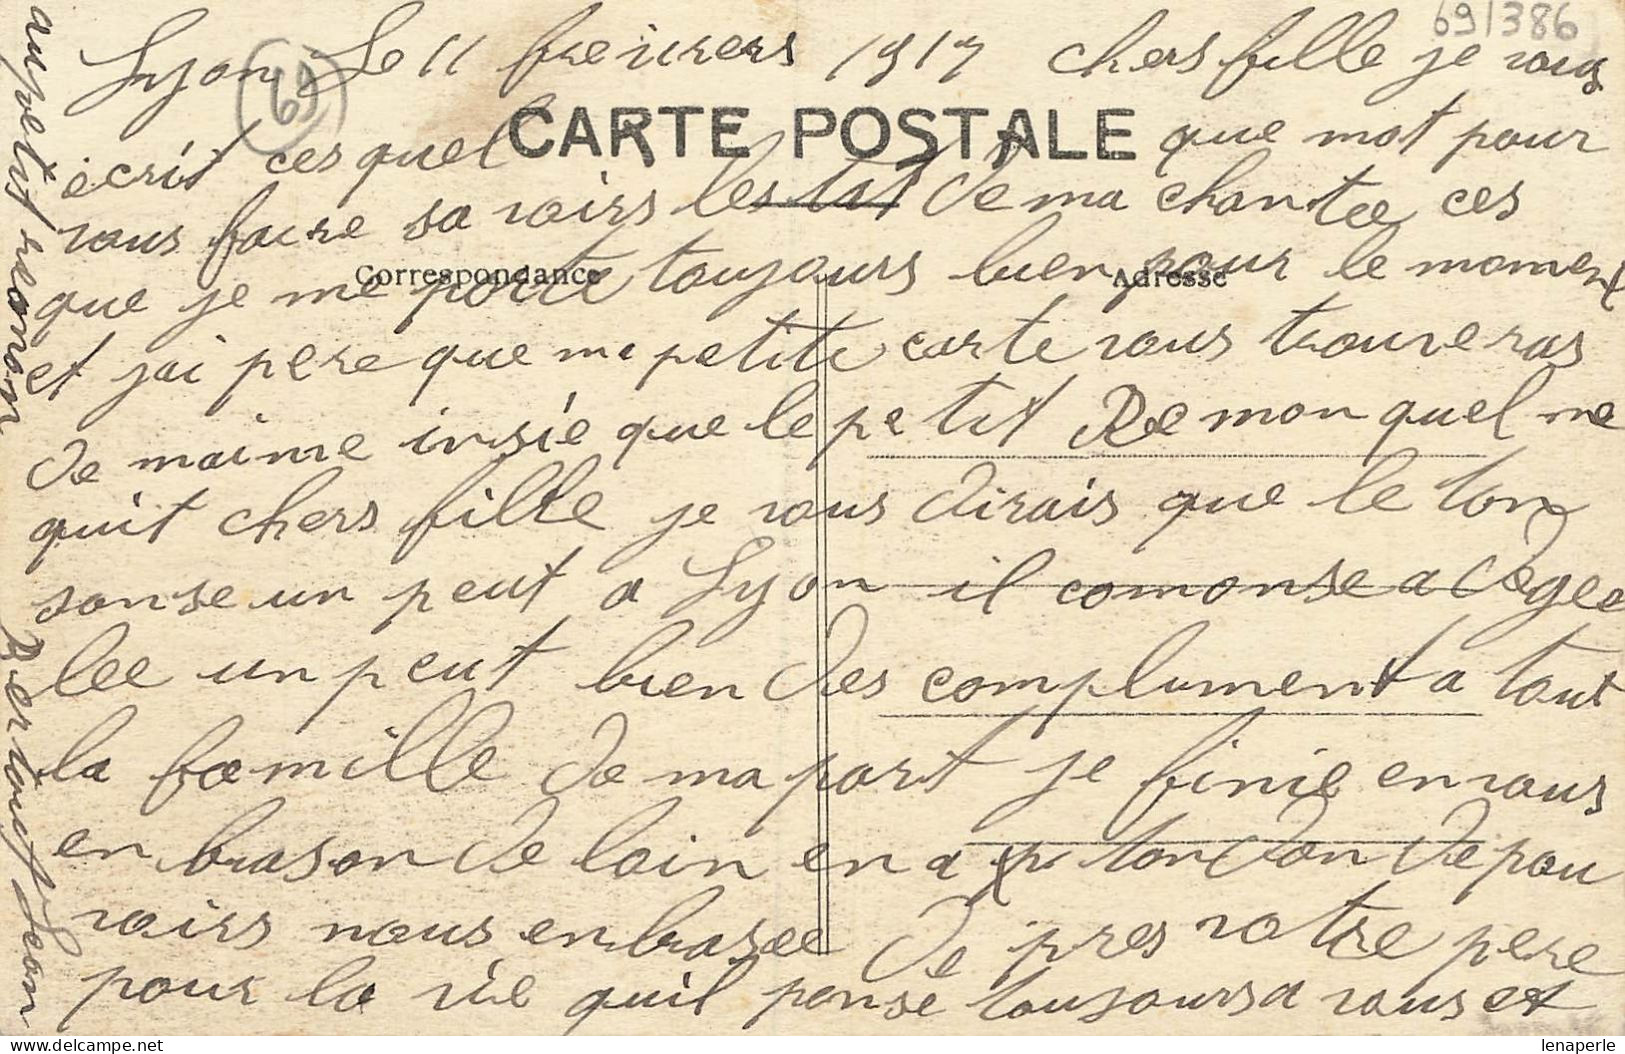 69/386
Lyon Le 11 frevriers 1917 chers fille je vous
69
CARTE POSTALE
écrit ces quel que mot pour
vous faire sa voirs les tat de ma chantee ces
Correspondance
Adresse
que je me porte toujours bien pour le moment
et jai pere que ma petite carte vous trouveras
de maime insie que le petit Remon quel me
quit chers fille je vous dirais que le ton
sonse un peut a Lyon il comonse a degee
lee un peut bien des complument a tout
la famille de ma part je finie en vous
en brason de loin en a tondon de pou
voirs nous enbrasee de pres votre pere
pour la vie quil ponse toujours a vous et
au petit remon Vertouf Leon
lenaperle